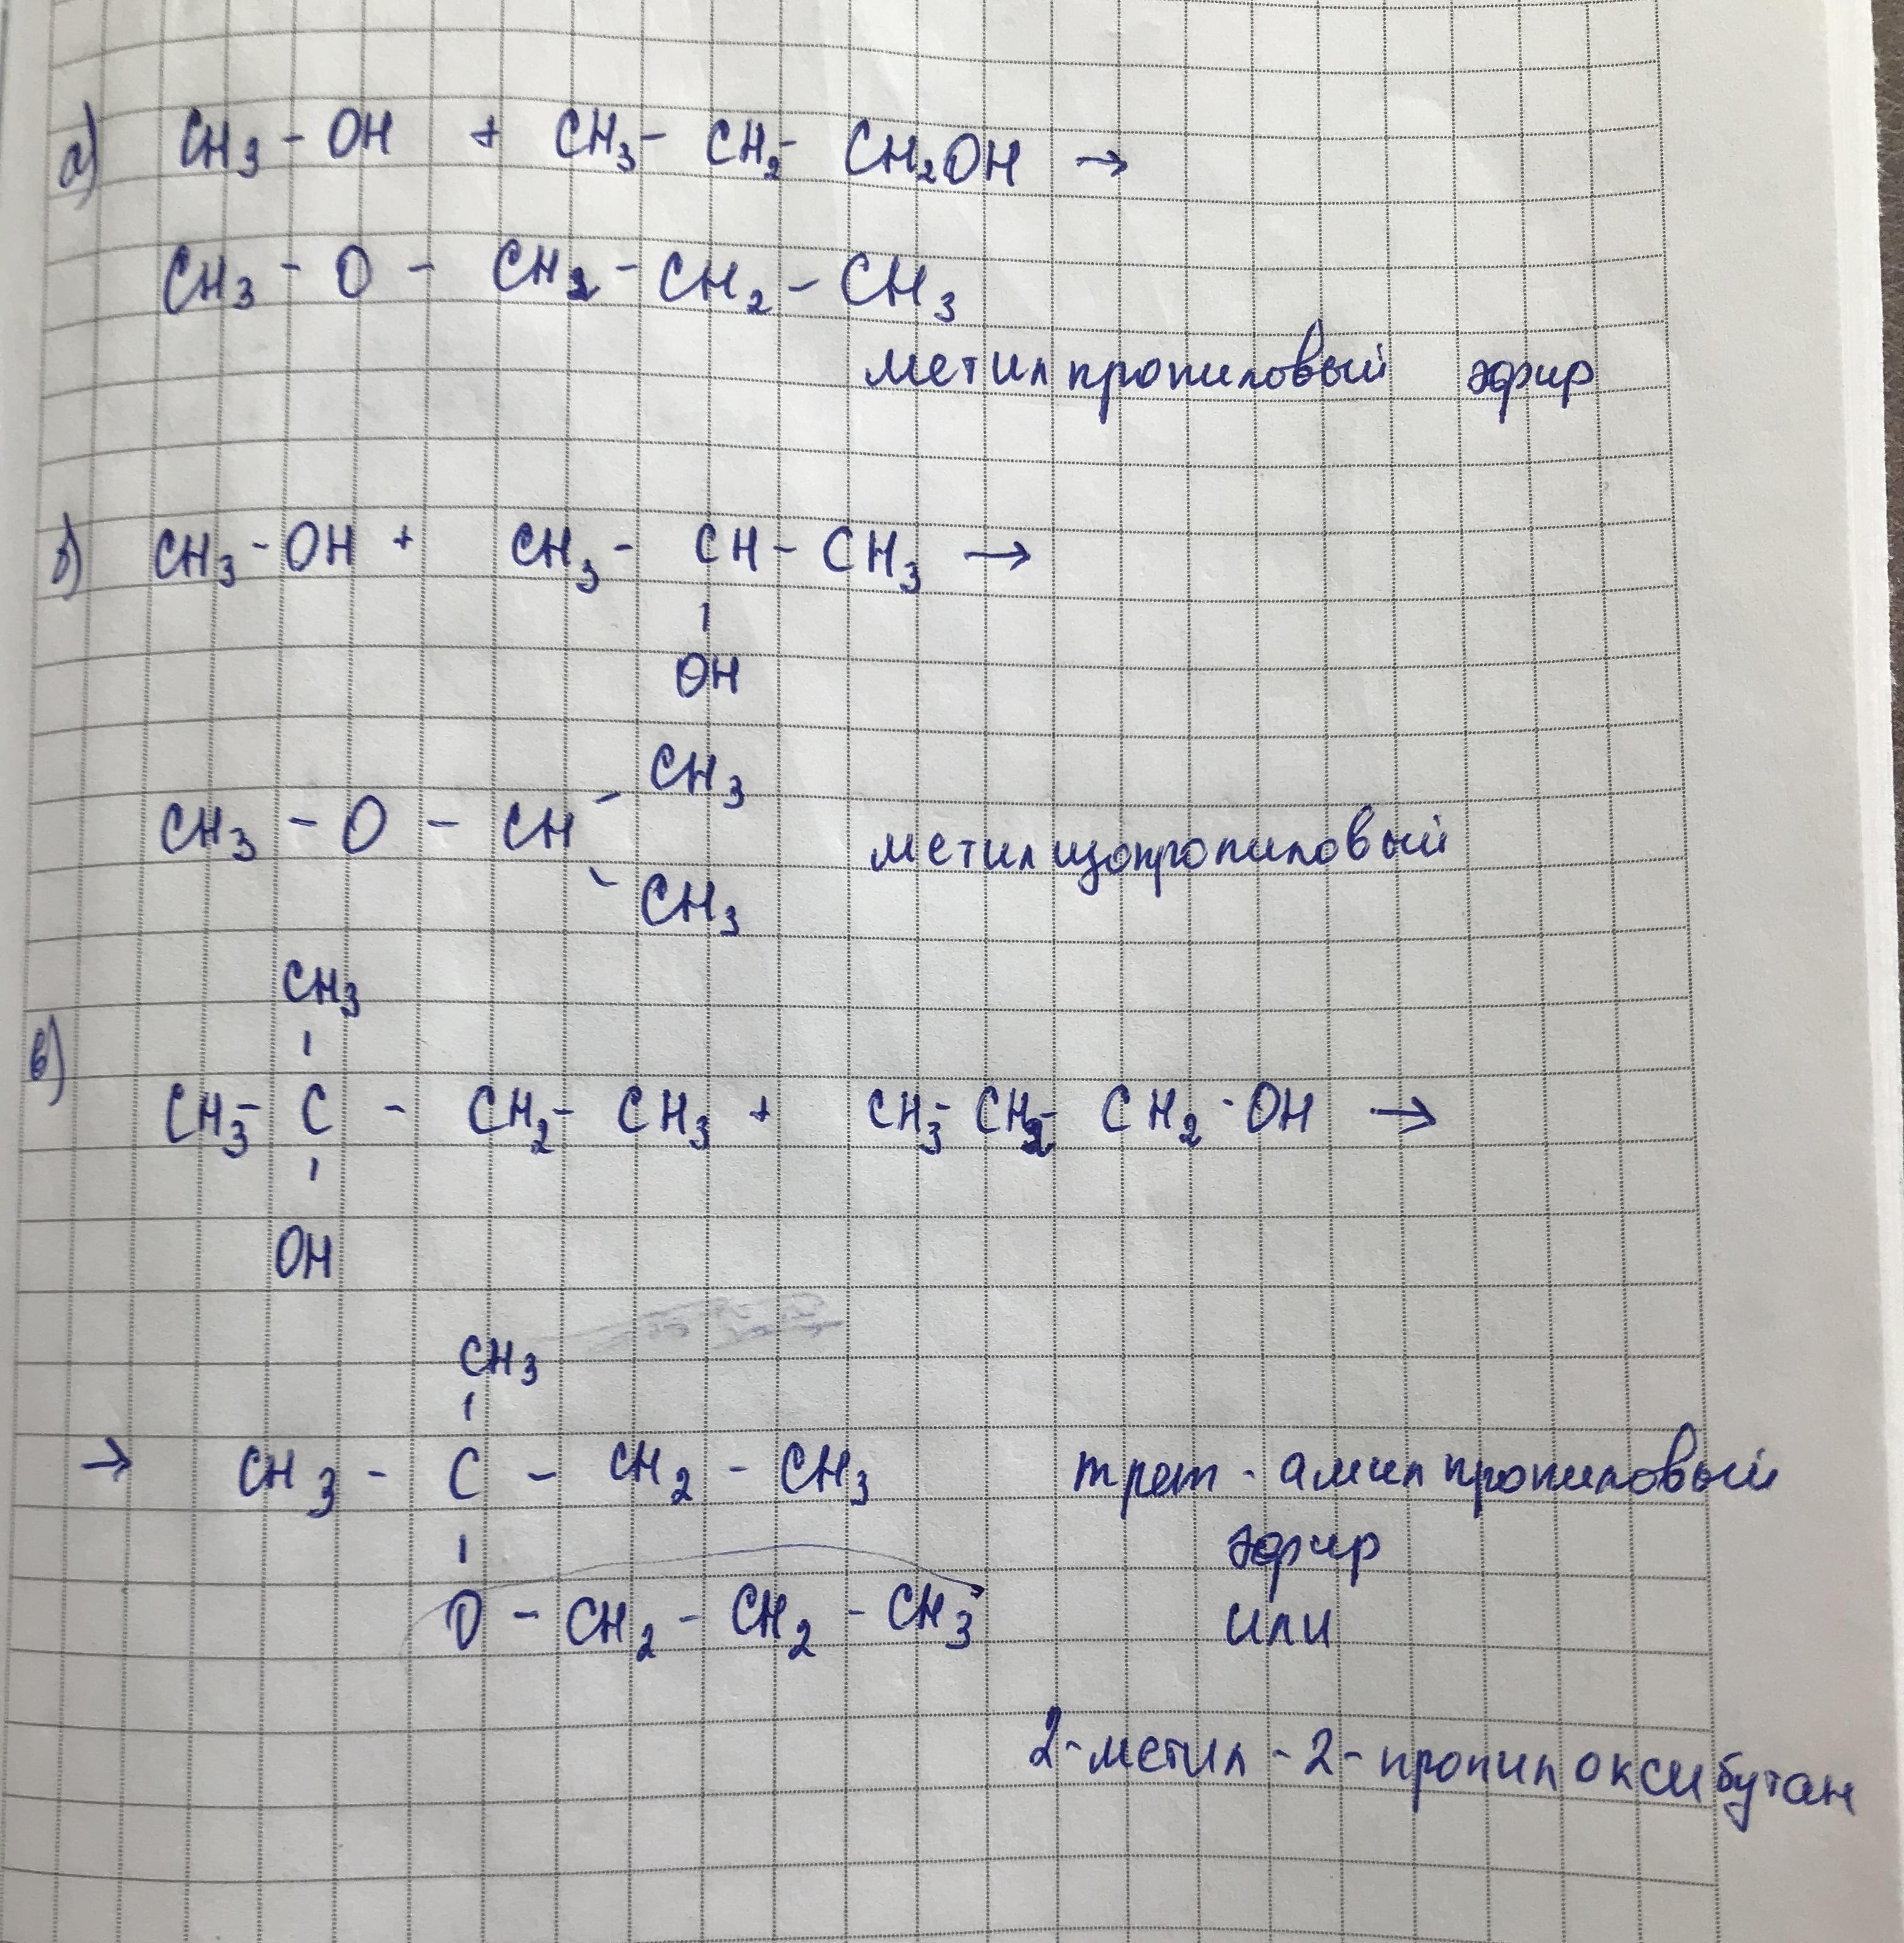 а) CH₃ - OH + CH₃ - CH₂ - CH₂OH →
CH₃ - O - CH₂ - CH₂ - CH₃
метилпропиловый эфир
б) CH₃ - OH + CH₃ - CH - CH₃ →
OH
CH₃
CH₃ - O - CH
метилизопропиловый
CH₃
CH₃
в)
CH₃ - C - CH₂ - CH₃ + CH₃ - CH₂ - CH₂ - OH →
OH
CH₃
→ CH₃ - C - CH₂ - CH₃ трет - амилпропиловый
эфир
O - CH₂ - CH₂ - CH₃ или
2-метил-2-пропилоксибутан